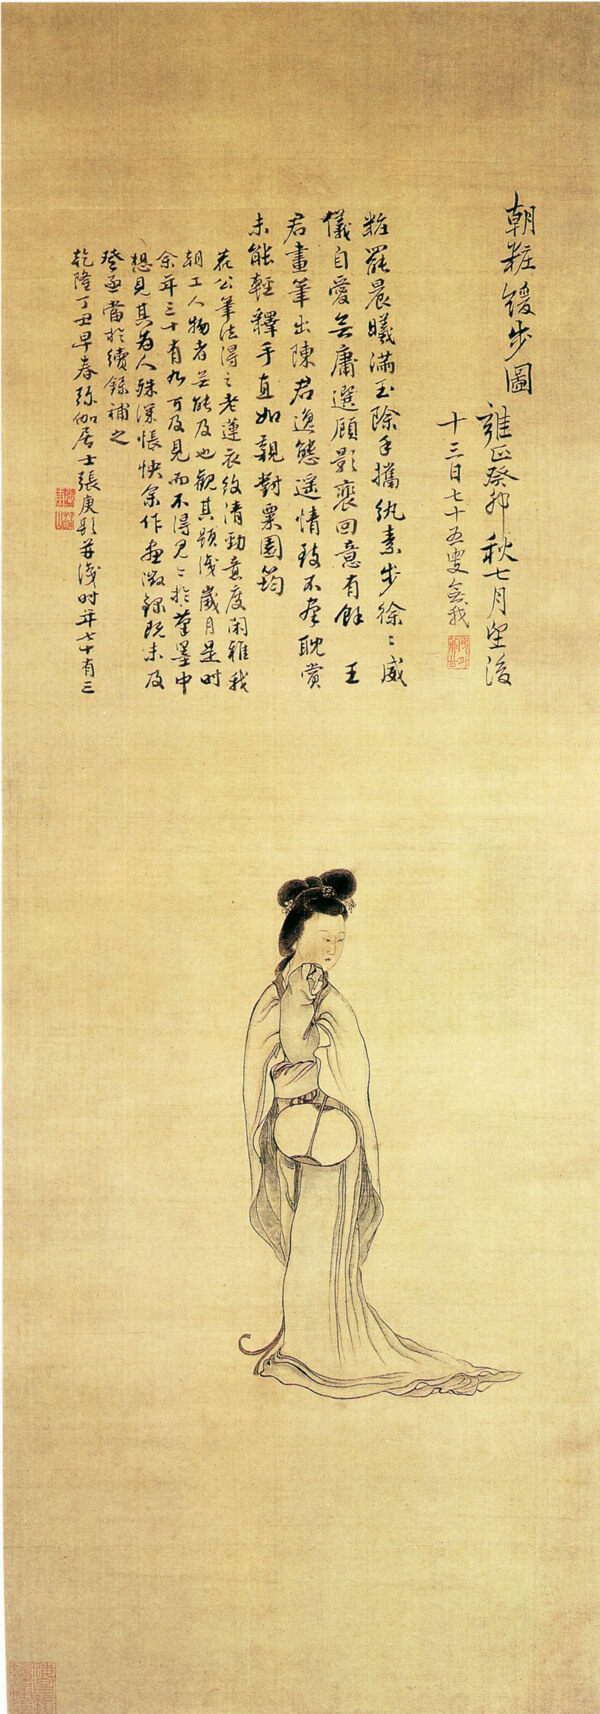 朝粧緩步圖
雍正癸卯秋七月望後
十三日七十五叟
粧罷晨曦滿玉除手攜紈素步徐〻威
儀自愛無庸選顧影裵回意有餘 王
君畫筆出陳君逸態遥情致不羣耽賞
未能輕釋手直如親對粟園筠
花公筆法得之老蓮衣紋清勁意度閑雅我
朝工人物者莫能及也觀其題識歲月是時
余年三十有九可及見而不得見〻於筆墨中
想見其為人殊深悵怏余作畫徵錄既未及
登亟當於續錄補之
乾隆丁丑早春弥伽居士張庚題并識时年七十有三